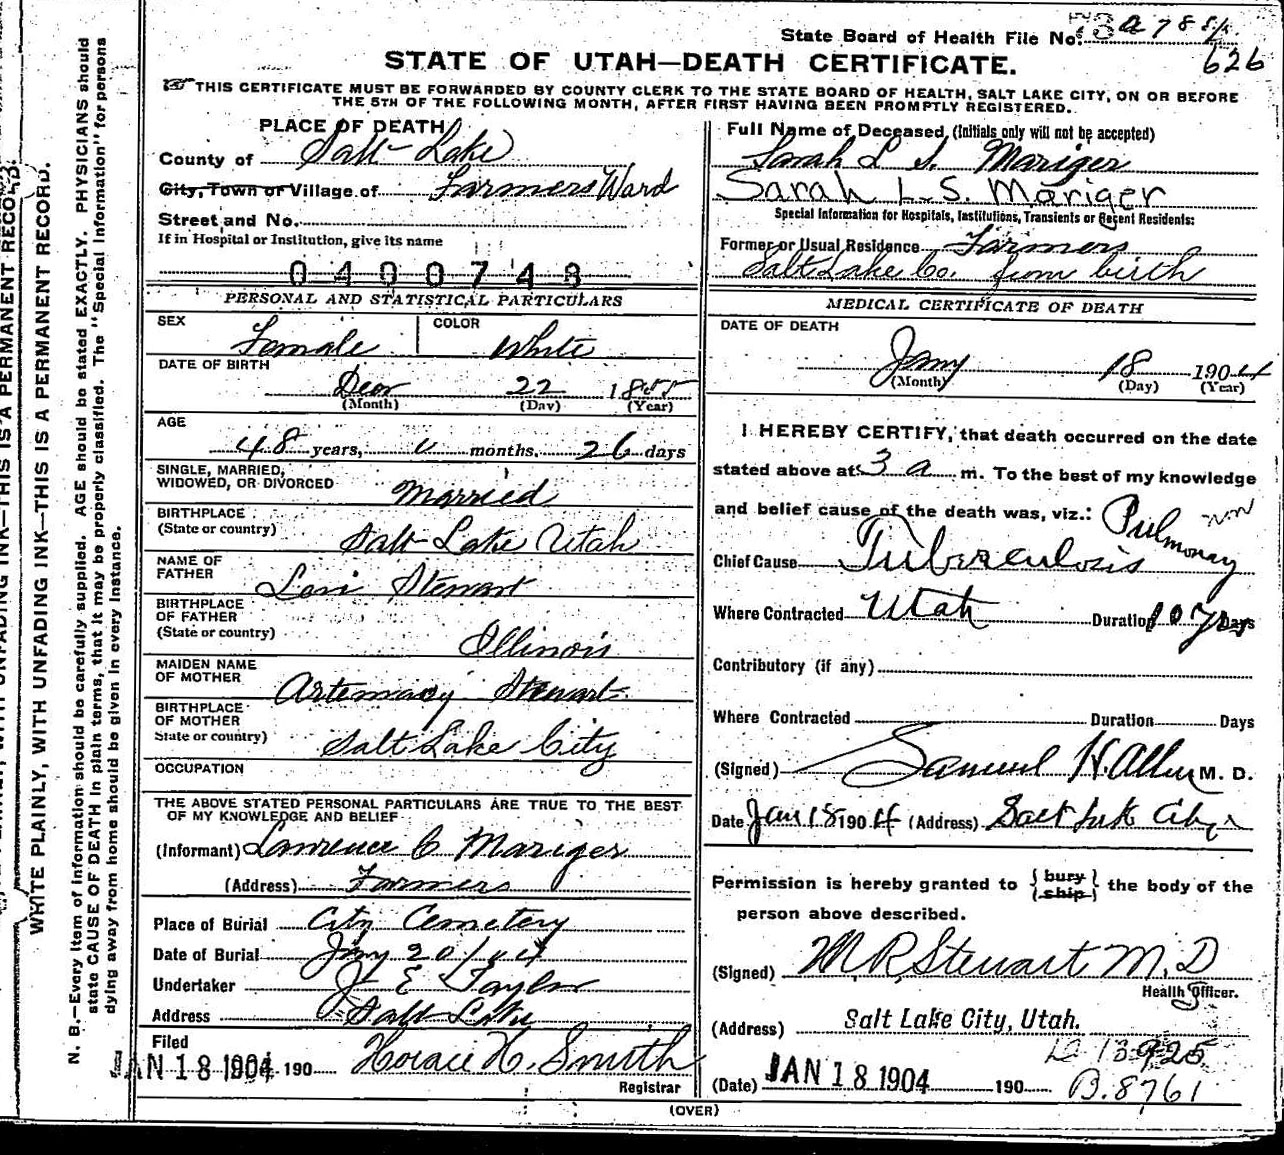 State Board of Health File No. 
626
STATE OF UTAH—DEATH CERTIFICATE.
THIS CERTIFICATE MUST BE FORWARDED BY COUNTY CLERK TO THE STATE BOARD OF HEALTH, SALT LAKE CITY, ON OR BEFORE
THE 5TH OF THE FOLLOWING MONTH, AFTER FIRST HAVING BEEN PROMPTLY REGISTERED.
PLACE OF DEATH
County of Salt Lake
City, Town or Village of Farmers Ward
Street and No.
If in Hospital or Institution, give its name
0400748
PERSONAL AND STATISTICAL PARTICULARS
SEX Female COLOR White
DATE OF BIRTH
22 1855
(Month) (Day) (Year)
AGE
48 years, months, 26 days
SINGLE, MARRIED,
WIDOWED, OR DIVORCED Married
BIRTHPLACE
(State or country) Salt Lake Utah
NAME OF
FATHER Levi Stewart
BIRTHPLACE
OF FATHER
(State or country) Illinois
MAIDEN NAME
OF MOTHER Artemacy Stewart
BIRTHPLACE
OF MOTHER
State or country) Salt Lake City
OCCUPATION
THE ABOVE STATED PERSONAL PARTICULARS ARE TRUE TO THE BEST
OF MY KNOWLEDGE AND BELIEF
(Informant) Lawrence C Mariger
(Address) Farmers
Place of Burial City Cemetery
Date of Burial Jany 20/04
Undertaker J E Taylor
Address Salt Lake
Filed
JAN 18 1904 190 Horace H. Smith
Registrar
Full Name of Deceased, (Initials only will not be accepted)
Sarah L S. Mariger
Sarah L. S. Mariger
Special Information for Hospitals, Institutions, Transients or Recent Residents:
Former or Usual Residence Farmers
Salt Lake Co. from birth
MEDICAL CERTIFICATE OF DEATH
DATE OF DEATH
Jany 18 1904
(Month) (Day) (Year)
I HEREBY CERTIFY, that death occurred on the date
stated above at 3 a m. To the best of my knowledge
and belief cause of the death was, viz.: Pulmonary
Chief Cause Tuberculosis
Where Contracted Utah Duration 10 yrs Days
Contributory (if any)
Where Contracted Duration Days
(Signed) Samuel H. Allen M. D.
Date Jan 18 1904 (Address) Salt Lake City
Permission is hereby granted to { bury ship } the body of the
person above described.
(Signed) M R Stewart M. D
Health Officer.
(Address) Salt Lake City, Utah.
(Date) JAN 18 1904 190
B. 8761
(OVER)
WRITE PLAINLY, WITH UNFADING INK—THIS IS A PERMANENT RECORD.
N. B.—Every item of information should be carefully supplied. AGE should be stated EXACTLY. PHYSICIANS should
state CAUSE OF DEATH in plain terms, that it may be properly classified. The "Special Information" for persons
dying away from home should be given in every instance.